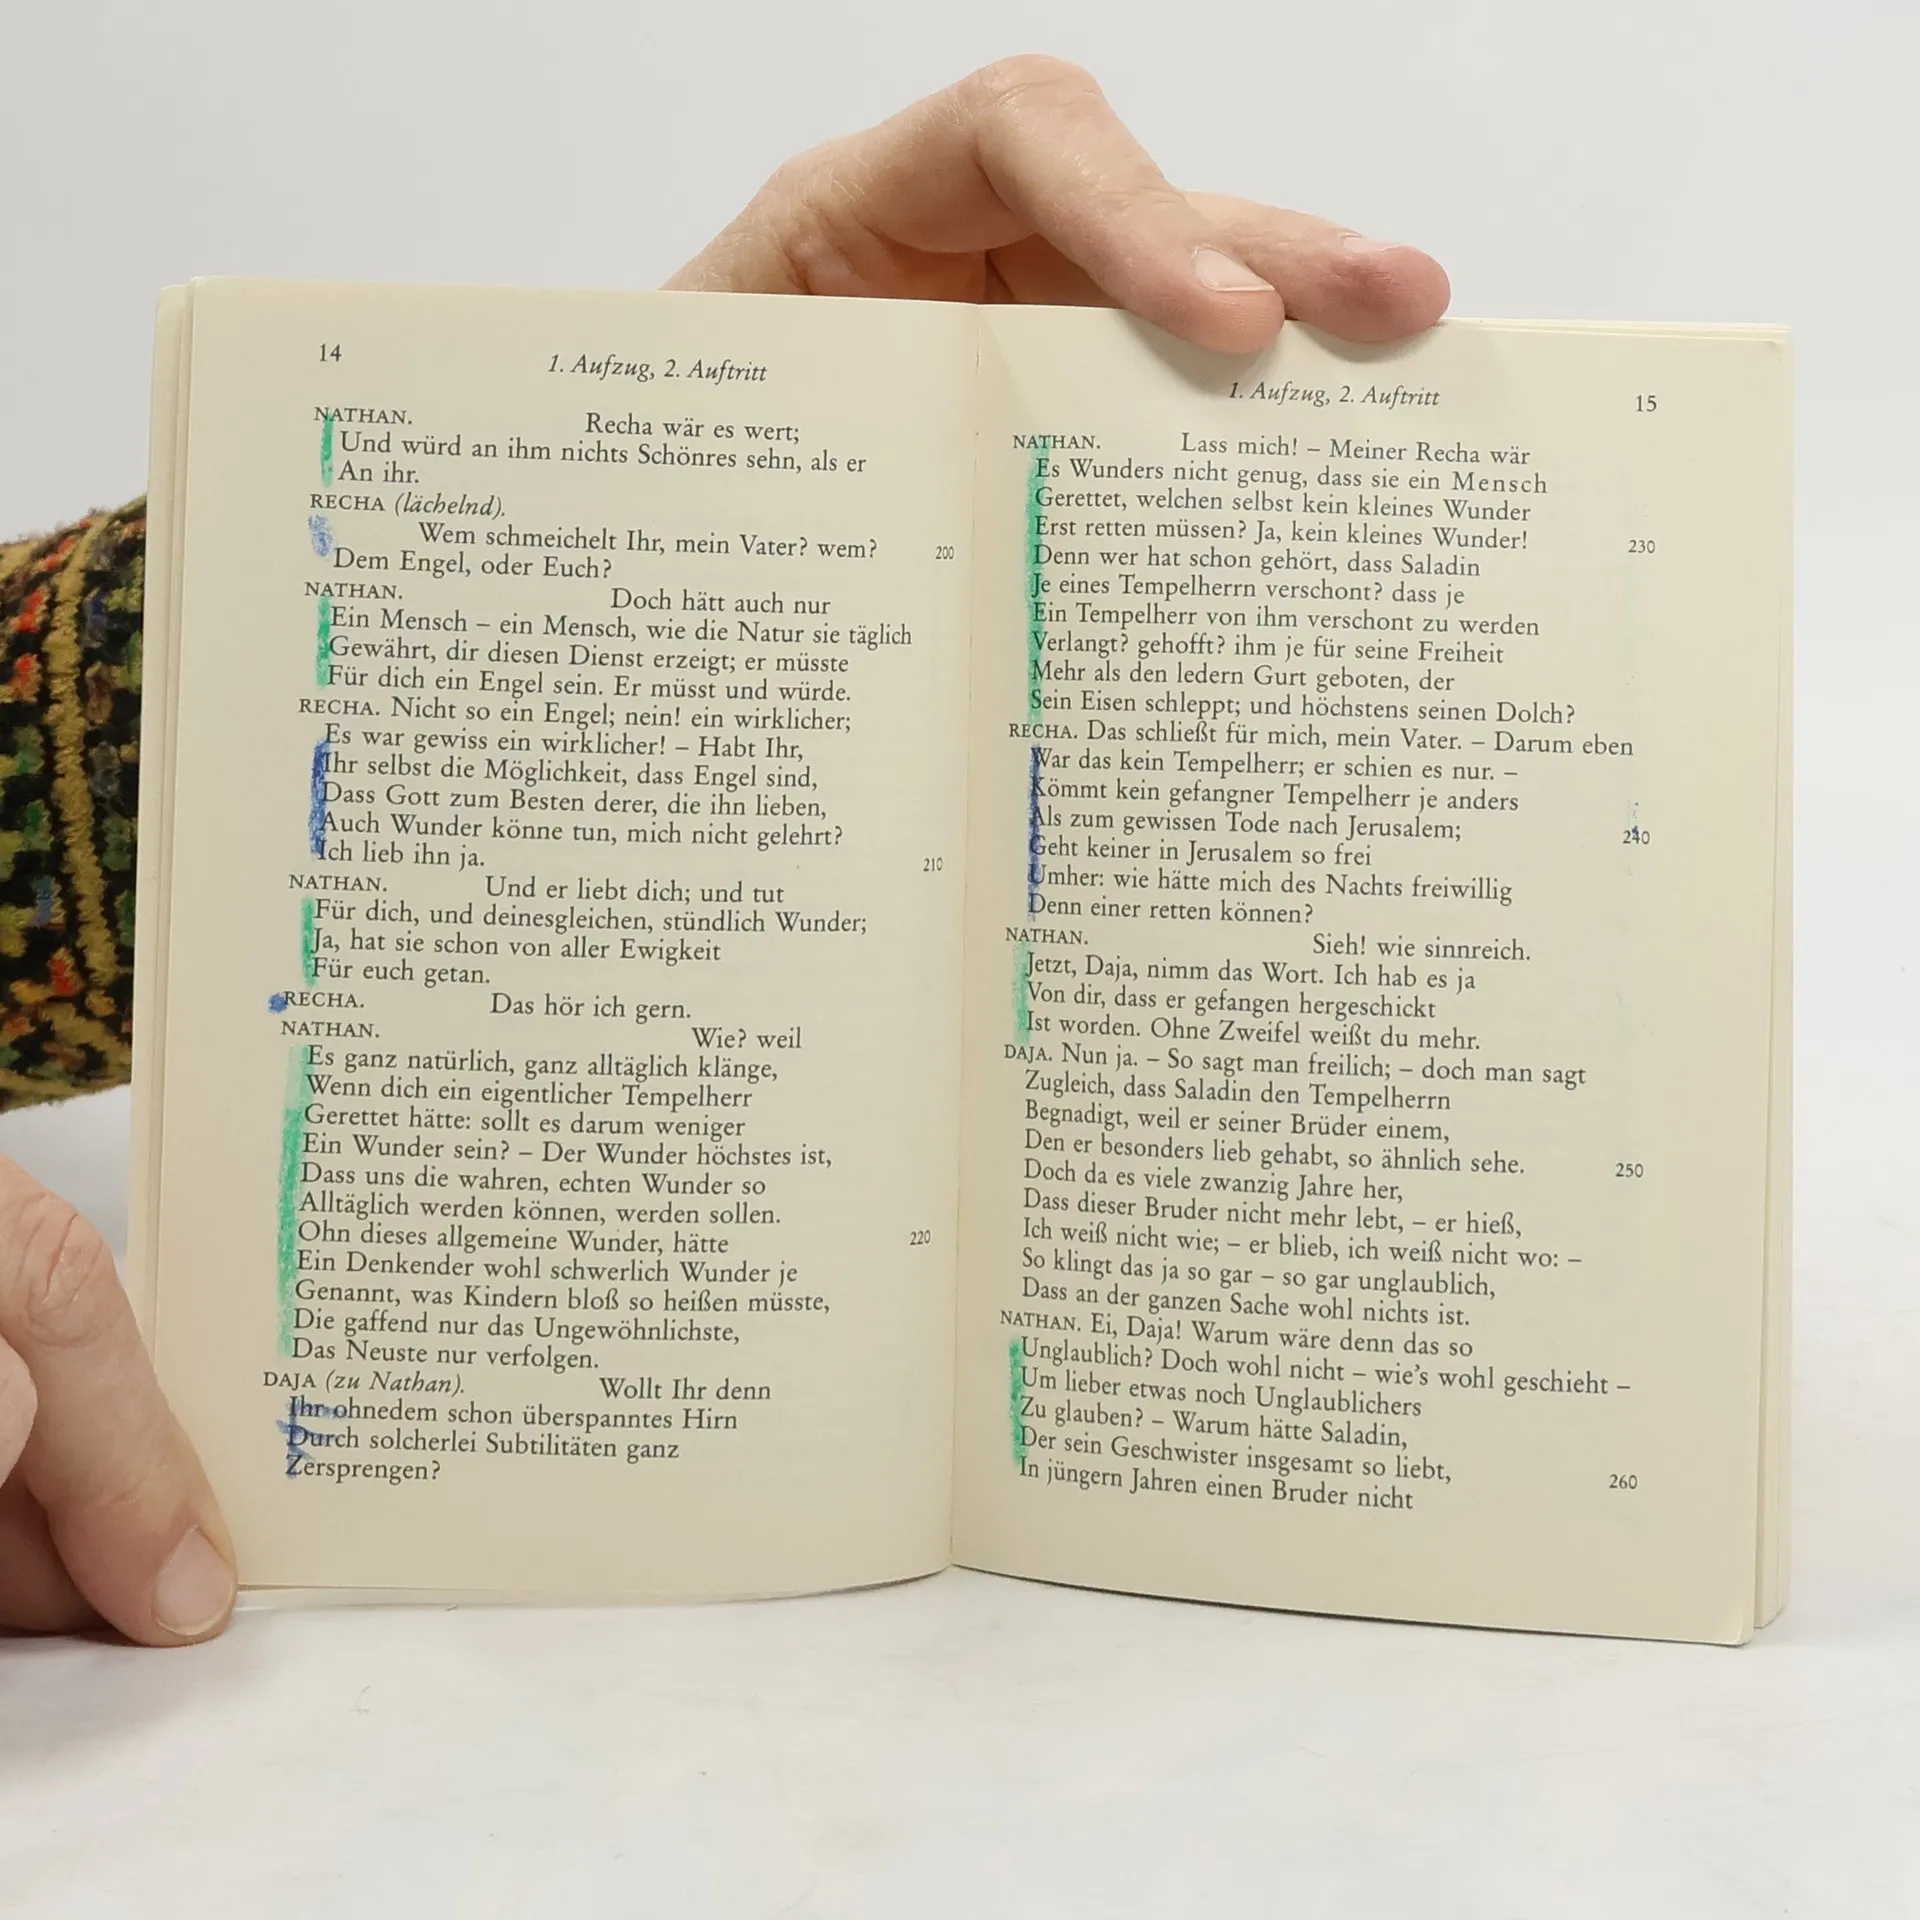 14
1. Aufzug, 2. Auftritt
NATHAN. Recha wär es wert;
Und würd an ihm nichts Schönres sehn, als er
An ihr.
RECHA (lächelnd).
Wem schmeichelt Ihr, mein Vater? wem? 200
Dem Engel, oder Euch?
NATHAN. Doch hätt auch nur
Ein Mensch – ein Mensch, wie die Natur sie täglich
Gewährt, dir diesen Dienst erzeigt; er müsste
Für dich ein Engel sein. Er müsst und würde.
RECHA. Nicht so ein Engel; nein! ein wirklicher;
Es war gewiss ein wirklicher! – Habt Ihr,
Ihr selbst die Möglichkeit, dass Engel sind,
Dass Gott zum Besten derer, die ihn lieben,
Auch Wunder könne tun, mich nicht gelehrt?
Ich lieb ihn ja. 210
NATHAN. Und er liebt dich; und tut
Für dich, und deinesgleichen, stündlich Wunder;
Ja, hat sie schon von aller Ewigkeit
Für euch getan.
RECHA. Das hör ich gern.
NATHAN. Wie? weil
Es ganz natürlich, ganz alltäglich klänge,
Wenn dich ein eigentlicher Tempelherr
Gerettet hätte: sollt es darum weniger
Ein Wunder sein? – Der Wunder höchstes ist,
Dass uns die wahren, echten Wunder so
Alltäglich werden können, werden sollen.
Ohn dieses allgemeine Wunder, hätte 220
Ein Denkender wohl schwerlich Wunder je
Genannt, was Kindern bloß so heißen müsste,
Die gaffend nur das Ungewöhnlichste,
Das Neuste nur verfolgen.
DAJA (zu Nathan). Wollt Ihr denn
Ihr ohnedem schon überspanntes Hirn
Durch solcherlei Subtilitäten ganz
Zersprengen?
1. Aufzug, 2. Auftritt
15
NATHAN. Lass mich! – Meiner Recha wär
Es Wunders nicht genug, dass sie ein Mensch
Gerettet, welchen selbst kein kleines Wunder
Erst retten müssen? Ja, kein kleines Wunder! 230
Denn wer hat schon gehört, dass Saladin
Je eines Tempelherrn verschont? dass je
Ein Tempelherr von ihm verschont zu werden
Verlangt? gehofft? ihm je für seine Freiheit
Mehr als den ledern Gurt geboten, der
Sein Eisen schleppt; und höchstens seinen Dolch?
RECHA. Das schließt für mich, mein Vater. – Darum eben
War das kein Tempelherr; er schien es nur. –
Kömmt kein gefangner Tempelherr je anders
Als zum gewissen Tode nach Jerusalem; 240
Geht keiner in Jerusalem so frei
Umher: wie hätte mich des Nachts freiwillig
Denn einer retten können?
NATHAN. Sieh! wie sinnreich.
Jetzt, Daja, nimm das Wort. Ich hab es ja
Von dir, dass er gefangen hergeschickt
Ist worden. Ohne Zweifel weißt du mehr.
DAJA. Nun ja. – So sagt man freilich; – doch man sagt
Zugleich, dass Saladin den Tempelherrn
Begnadigt, weil er seiner Brüder einem,
Den er besonders lieb gehabt, so ähnlich sehe. 250
Doch da es viele zwanzig Jahre her,
Dass dieser Bruder nicht mehr lebt, – er hieß,
Ich weiß nicht wie; – er blieb, ich weiß nicht wo: –
So klingt das ja so gar – so gar unglaublich,
Dass an der ganzen Sache wohl nichts ist.
NATHAN. Ei, Daja! Warum wäre denn das so
Unglaublich? Doch wohl nicht – wie's wohl geschieht –
Um lieber etwas noch Unglaublichers
Zu glauben? – Warum hätte Saladin,
Der sein Geschwister insgesamt so liebt, 260
In jüngern Jahren einen Bruder nicht